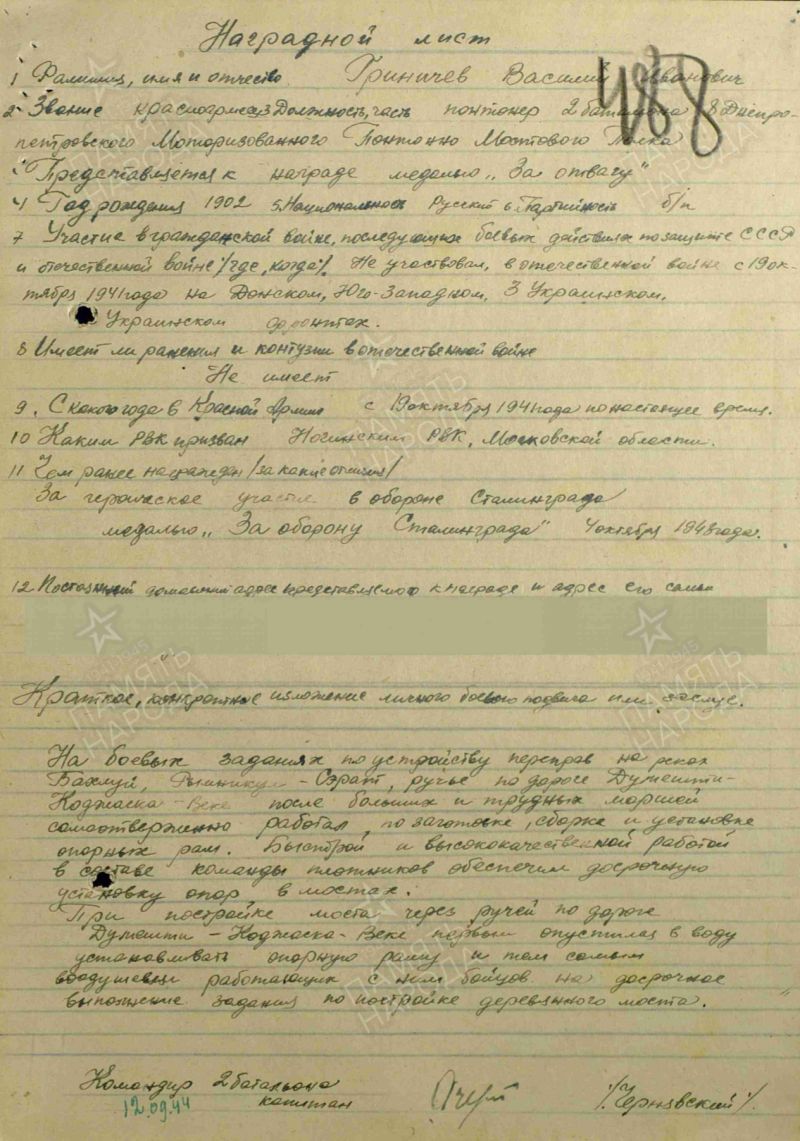 Наградной лист
488
1 Фамилия, имя и отчество Гриничев Василий Иванович
2 Звание красноармеец 3 Должность, часть понтонер 2 батальона 8 Днепро-
петровского Моторизованного Понтонно Мостового Полка
Представляется к награде медалью „За отвагу"
4 Год рождения 1902 5. Национальность Русский 6. Партийность б/п
7 Участие в гражданской войне, последующих боевых действиях по защите СССР
и отечественной войне /где, когда/. Не участвовал, в отечественной войне с 19 ок-
тября 1941 года на Донском, Юго-Западном, 3 Украинском,
Украинском фронтах.
8 Имеет ли ранения и контузии в отечественной войне
Не имеет
9. С какого года в Красной Армии с 19 октября 1941 года по настоящее время.
10 Каким РВК призван Ногинским РВК, Московской области.
11 Чем ранее награжден /за какие отличия/
За героическое участие в обороне Сталинграда
медалью „За оборону Сталинграда" 4 октября 1943 года.
12 Постоянный домашний адрес представляемого к награде и адрес его семьи
Краткое, конкретное изложение личного боевого подвига или заслуг.
На боевых заданиях по устройству переправ на реках
Бахлуй, Рымникул-Сэрат, ручье по дороге Думешти-
Коджаска-Веке после больших и трудных маршей
самоотверженно работал, по заготовке, сборке и установке
опорных рам. Быстрой и высококачественной работой
в составе команды плотников обеспечил досрочную
установку опор в мостах.
При постройке моста через ручей по дороге
Думешти-Коджаска-Веке первым опустился в воду
устанавливать опорную раму и тем самым
воодушевил работающих с ним бойцов на досрочное
выполнение задания по постройке деревянного моста.
Командир 2 батальона
капитан /Чернявский/.
12.09.44
ПАМЯТЬ
НАРОДА